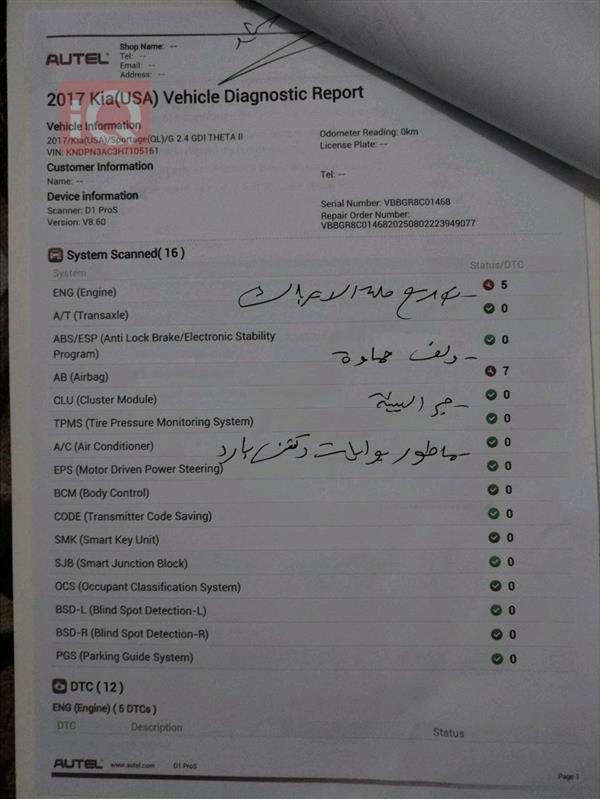 AUTEL
Shop Name: --
Tel: --
Email: --
Address: --
2017 Kia(USA) Vehicle Diagnostic Report
Vehicle Information
2017/Kia(USA)/Sportage(QL)/G 2.4 GDI THETA II
VIN: KNDPN3AC3H7105161
Odometer Reading: 0km
License Plate: --
Customer Information
Name: --
Tel: --
Device information
Scanner: D1 ProS
Version: V8.60
Serial Number: VBBGR8C01468
Repair Order Number:
VBBGR8C0146820250802223949077
System Scanned( 16 )
System Status/DTC
ENG (Engine) 5
A/T (Transaxle) 0
ABS/ESP (Anti Lock Brake/Electronic Stability Program) 0
AB (Airbag) 7
CLU (Cluster Module) 0
TPMS (Tire Pressure Monitoring System) 0
A/C (Air Conditioner) 0
EPS (Motor Driven Power Steering) 0
BCM (Body Control) 0
CODE (Transmitter Code Saving) 0
SMK (Smart Key Unit) 0
SJB (Smart Junction Block) 0
OCS (Occupant Classification System) 0
BSD-L (Blind Spot Detection-L) 0
BSD-R (Blind Spot Detection-R) 0
PGS (Parking Guide System) 0
DTC ( 12 )
ENG (Engine) ( 5 DTCs )
DTC Description Status
AUTEL www.autel.com D1 ProS Page 1